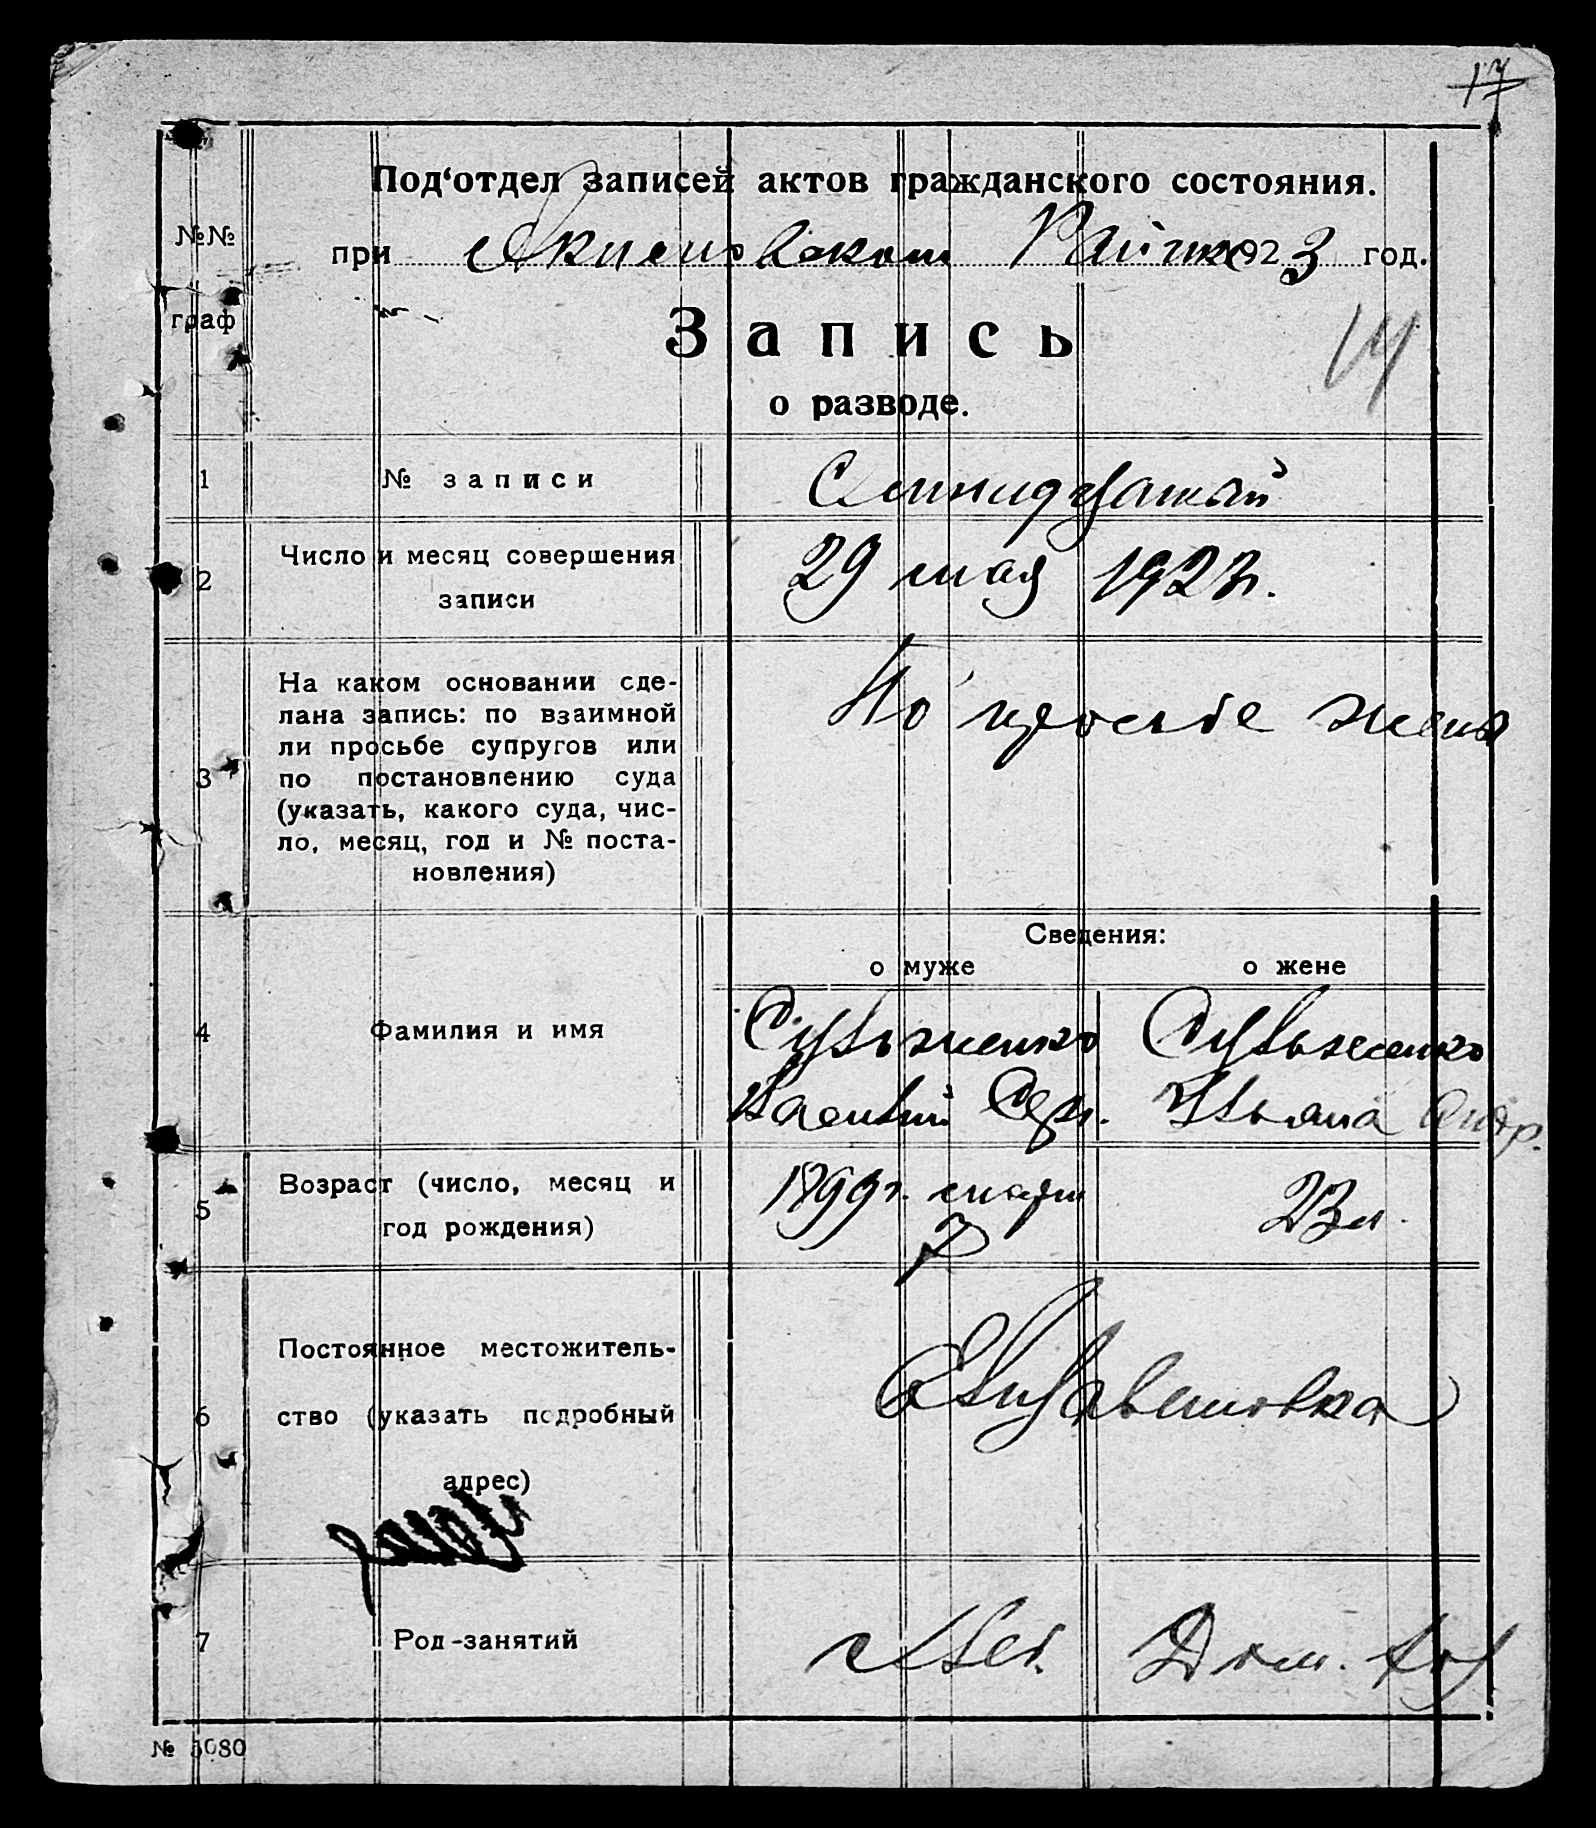 17
Под‘отдел записей актов гражданского состояния.
№№
граф
при Акимовском Райисп 1923 год.
Запись
14
о разводе.
1 № записи Семнидцатый
2 Число и месяц совершения
записи
29 мая 1923г.
3 На каком основании сде-
лана запись: по взаимной
ли просьбе супругов или
по постановлению суда
(указать, какого суда, чис-
ло, месяц, год и № поста-
новления)
По просьбе жены
Сведения:
о муже о жене
4 Фамилия и имя
Сульженко Сульженко
Василий Сер. Ульяна Андр.
5 Возраст (число, месяц и
год рождения)
1899г. март 23 л.
7
6 Постоянное местожитель-
ство (указать подробный
адрес)
Елизаветовка
7 Род-занятий
Хлеб. Дом. хоз
№ 5080